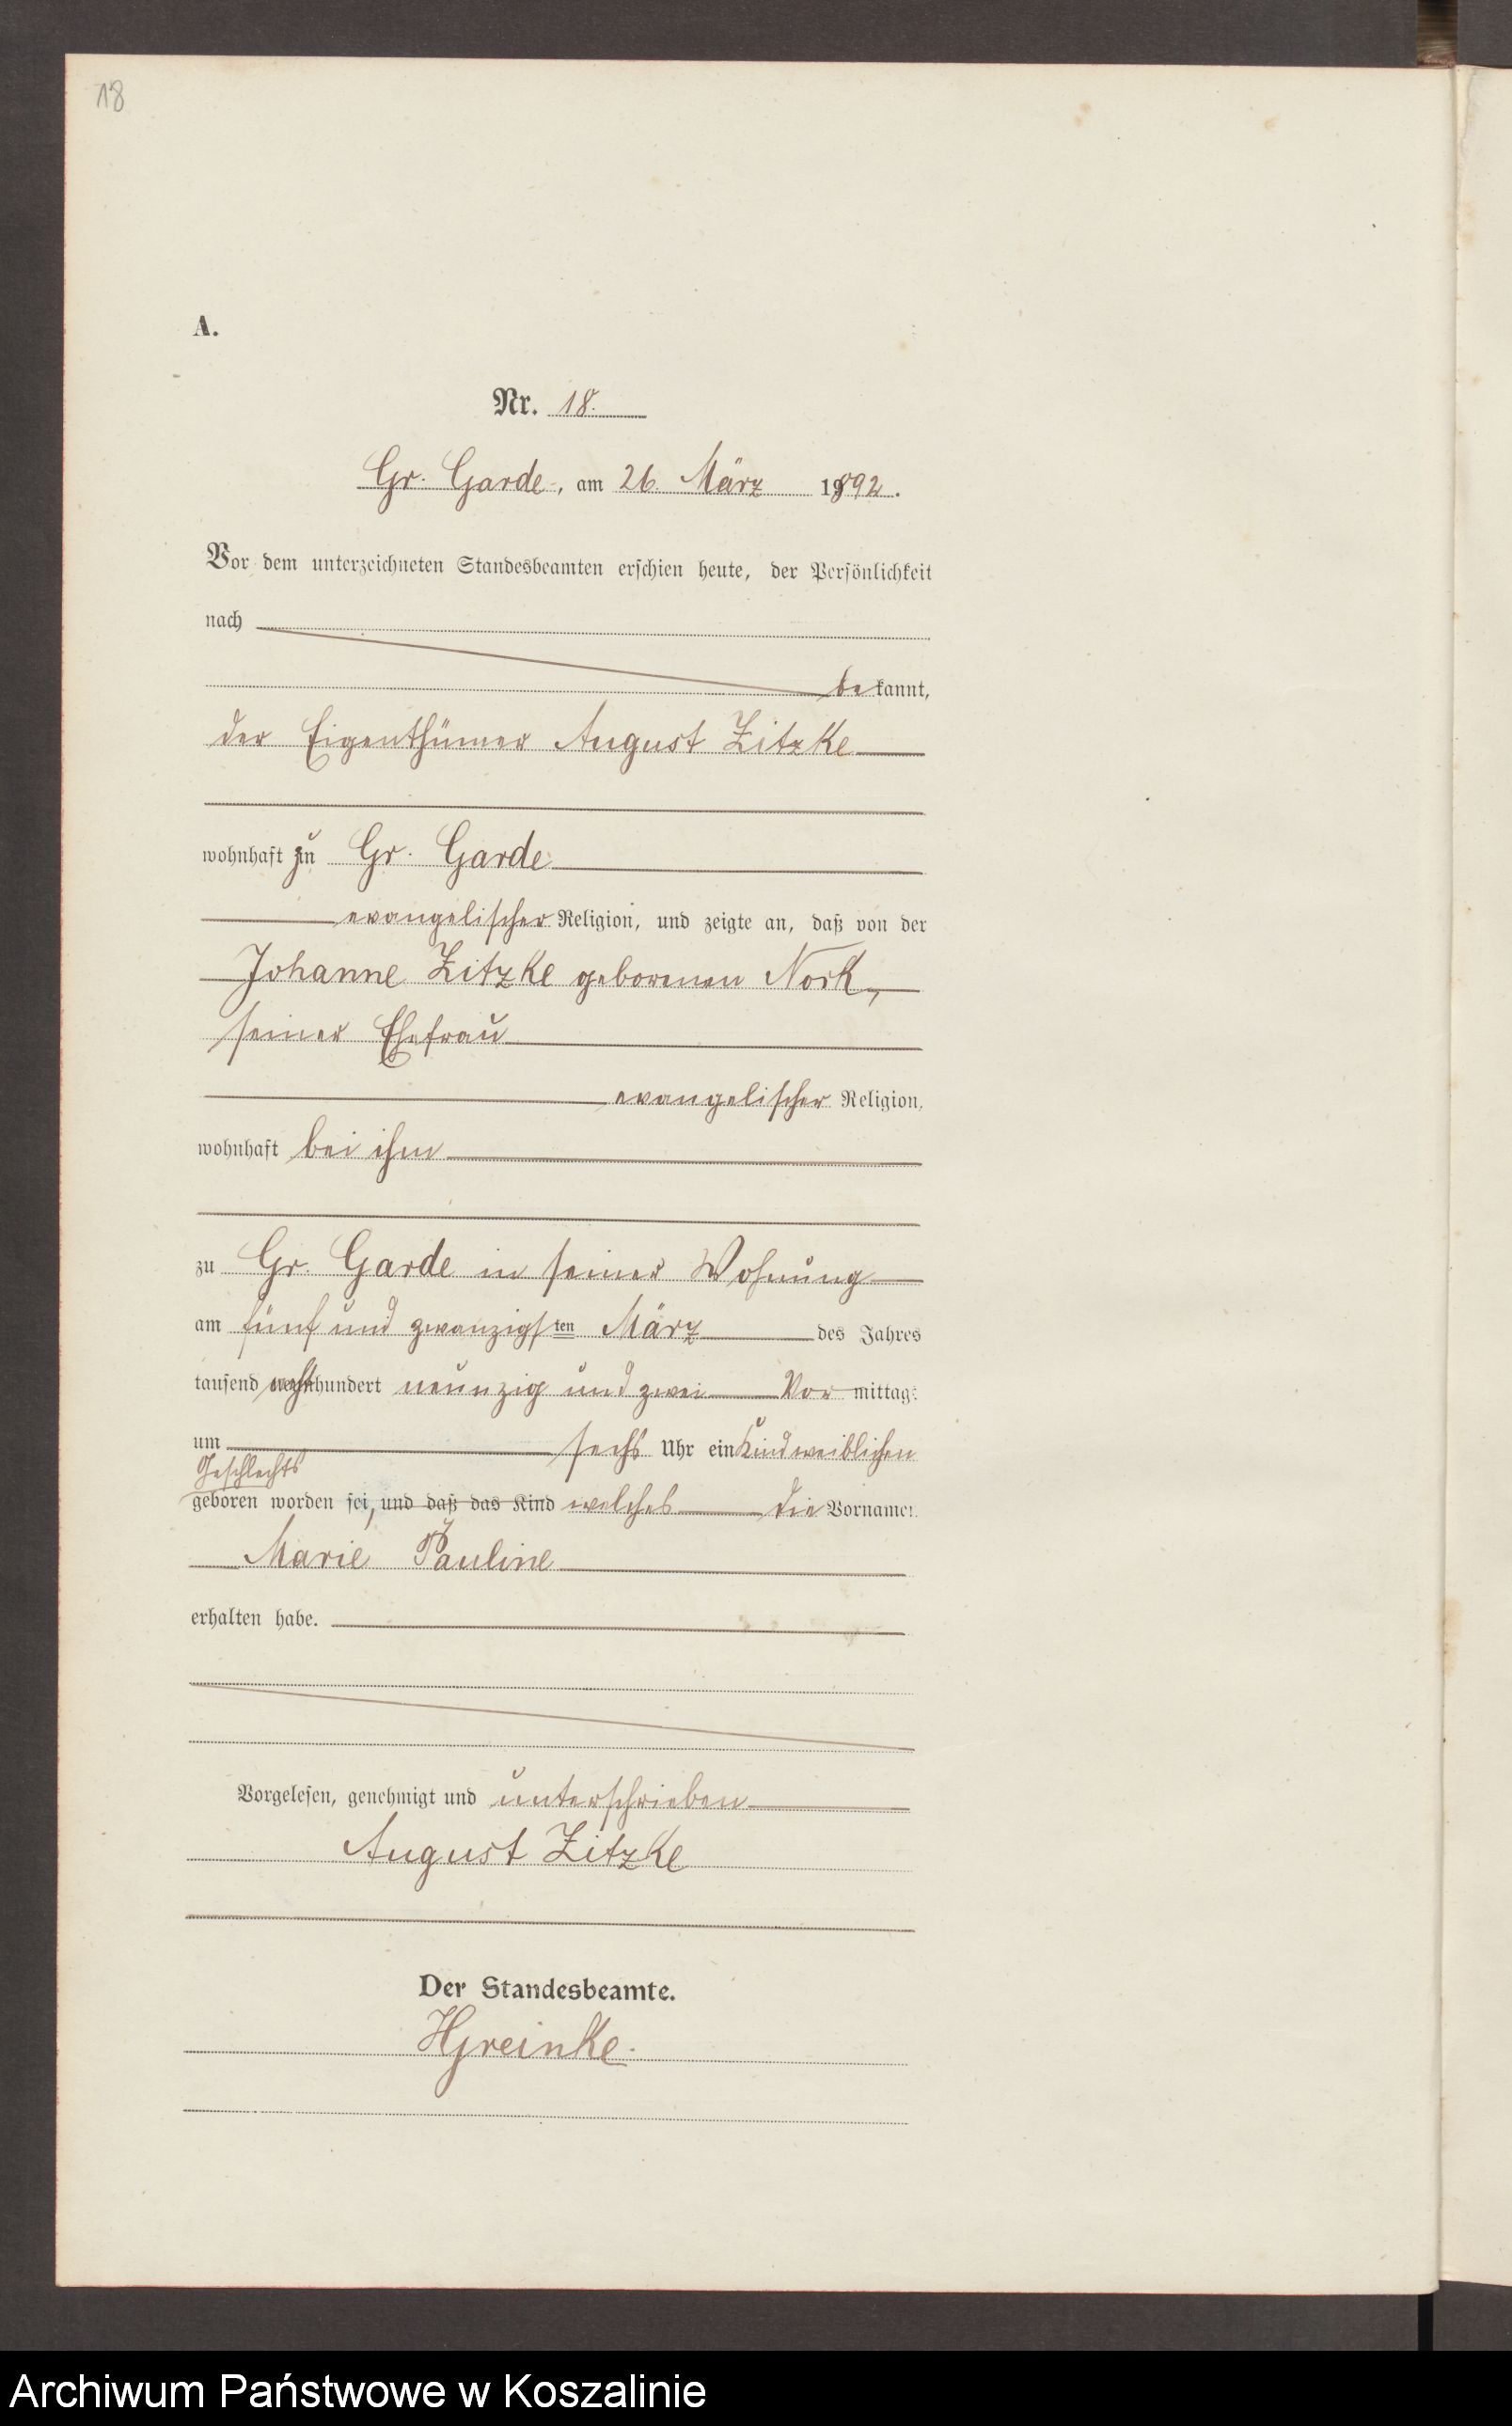 18
A.
Nr. 18.
Gr. Garde, am 26. März 1892.
Vor dem unterzeichneten Standesbeamten erschien heute, der Persönlichkeit
nach
bekannt,
der Eigenthümer August Zitzke
wohnhaft zu Gr. Garde
evangelischer Religion, und zeigte an, daß von der
Johanne Zitzke geborenen Nork,
seiner Ehefrau
evangelischer Religion,
wohnhaft bei ihm
zu Gr. Garde in seiner Wohnung
am fünf und zwanzigsten März des Jahres
tausend achthundert neunzig und zwei Vormittags
um sechs Uhr ein Kind weiblichen
Geschlechts
geboren worden sei, und daß das Kind welches die Vornamen
Marie Pauline
erhalten habe.
Vorgelesen, genehmigt und unterschrieben
August Zitzke
Der Standesbeamte.
HGreinke.
Archiwum Państwowe w Koszalinie